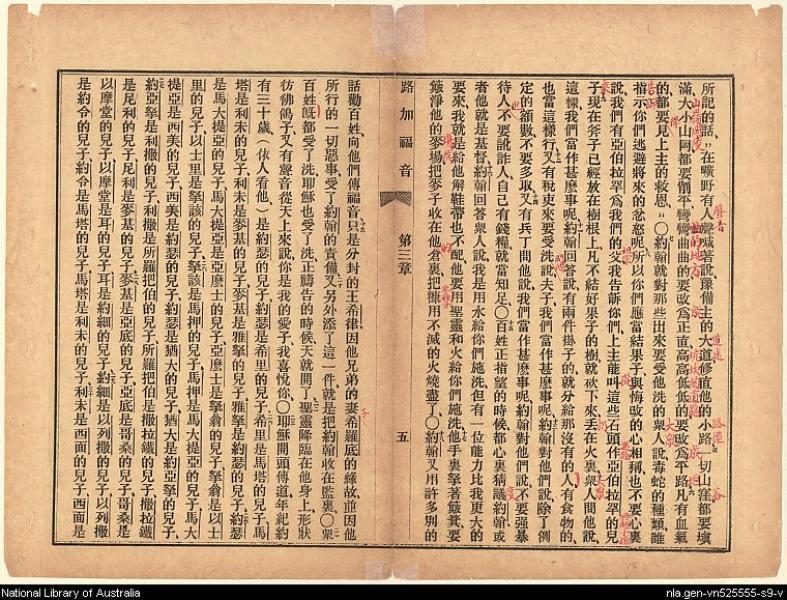 所記的話、在曠野有人聲喊著說、豫備主的大道、修直他的小路、一切山窪都要填
滿、大小山岡都要削平、彎彎曲曲的要改爲正直、高高低低的要改爲平路、凡有血氣
的、都要見上主的救恩、〇約翰就對那些出來要受他洗的衆人說、毒蛇的種類、誰
指示你們逃避將來的忿怒呢、所以你們應當結果子、與悔改的心相稱、也不要心裏
說、我們有亞伯拉罕爲我們的父、我告訴你們、上主能叫這些石頭作亞伯拉罕的兒
子、現在斧子已經放在樹根上、凡不結好果子的樹、就砍下來、丟在火裏、衆人問他說、
這樣我們當作甚麽事呢、約翰回答說、有兩件掛子的、就分給那沒有的人、有食物的、
也當這樣行、又有稅吏來要受洗、說、夫子、我們當作甚麽事呢、約翰對他們說、除了例
定的額數、不要多取、又有兵丁問他說、我們當作甚麽事呢、約翰對他們說、不要强暴
待人、不要訛詐人、自己有錢糧、就當知足、〇百姓正指望的時候、都心裏猜議約翰、或
者他就是基督、約翰回答衆人說、我是用水給你們施洗、但有一位能力比我更大的
要來、我就是給他解鞋帶也不配、他要用聖靈和火給你們施洗、他手裏拏著簸箕、要
簸淨他的麥場、把麥子收在他倉裏、把糠用不滅的火燒盡了、〇約翰又用許多別的
路加福音 第三章 五
話勸百姓、向他們傳福音、只是分封的王希律、因他兄弟的妻希羅底的緣故、並因他
所行的一切惡事、受了約翰的責備、又另外添了這一件、就是把約翰收在監裏、〇衆
百姓旣都受了洗、耶穌也受了洗、正禱告的時候、天就開了、聖靈降臨在他身上、形狀
彷彿鴿子、又有聲音從天上來、說、你是我的愛子、我喜悅你、〇耶穌開頭傳道、年紀約
有三十歲、（依人看他）是約瑟的兒子、約瑟是希里的兒子、希里是馬塔的兒子、馬
塔是利未的兒子、利未是麥基的兒子、麥基是雅拏的兒子、雅拏是約瑟的兒子、約瑟
是馬大提亞的兒子、馬大提亞是亞麽士的兒子、亞麽士是拏翁的兒子、拏翁是以士
里的兒子、以士里是拏該的兒子、拏該是馬押的兒子、馬押是馬大提亞的兒子、馬大
提亞是西美的兒子、西美是約瑟的兒子、約瑟是猶大的兒子、猶大是約亞拏的兒子、
約亞拏是利撒的兒子、利撒是所羅把伯的兒子、所羅把伯是撒拉鐵的兒子、撒拉鐵
是尼利的兒子、尼利是麥基的兒子、麥基是亞底的兒子、亞底是哥桑的兒子、哥桑是
以摩堂的兒子、以摩堂是耳的兒子、耳是約細的兒子、約細是以列撒的兒子、以列撒
是約令的兒子、約令是馬塔的兒子、馬塔是利未的兒子、利未是西面的兒子、西面是
National Library of Australia
nla.gen-vn525555-s9-v